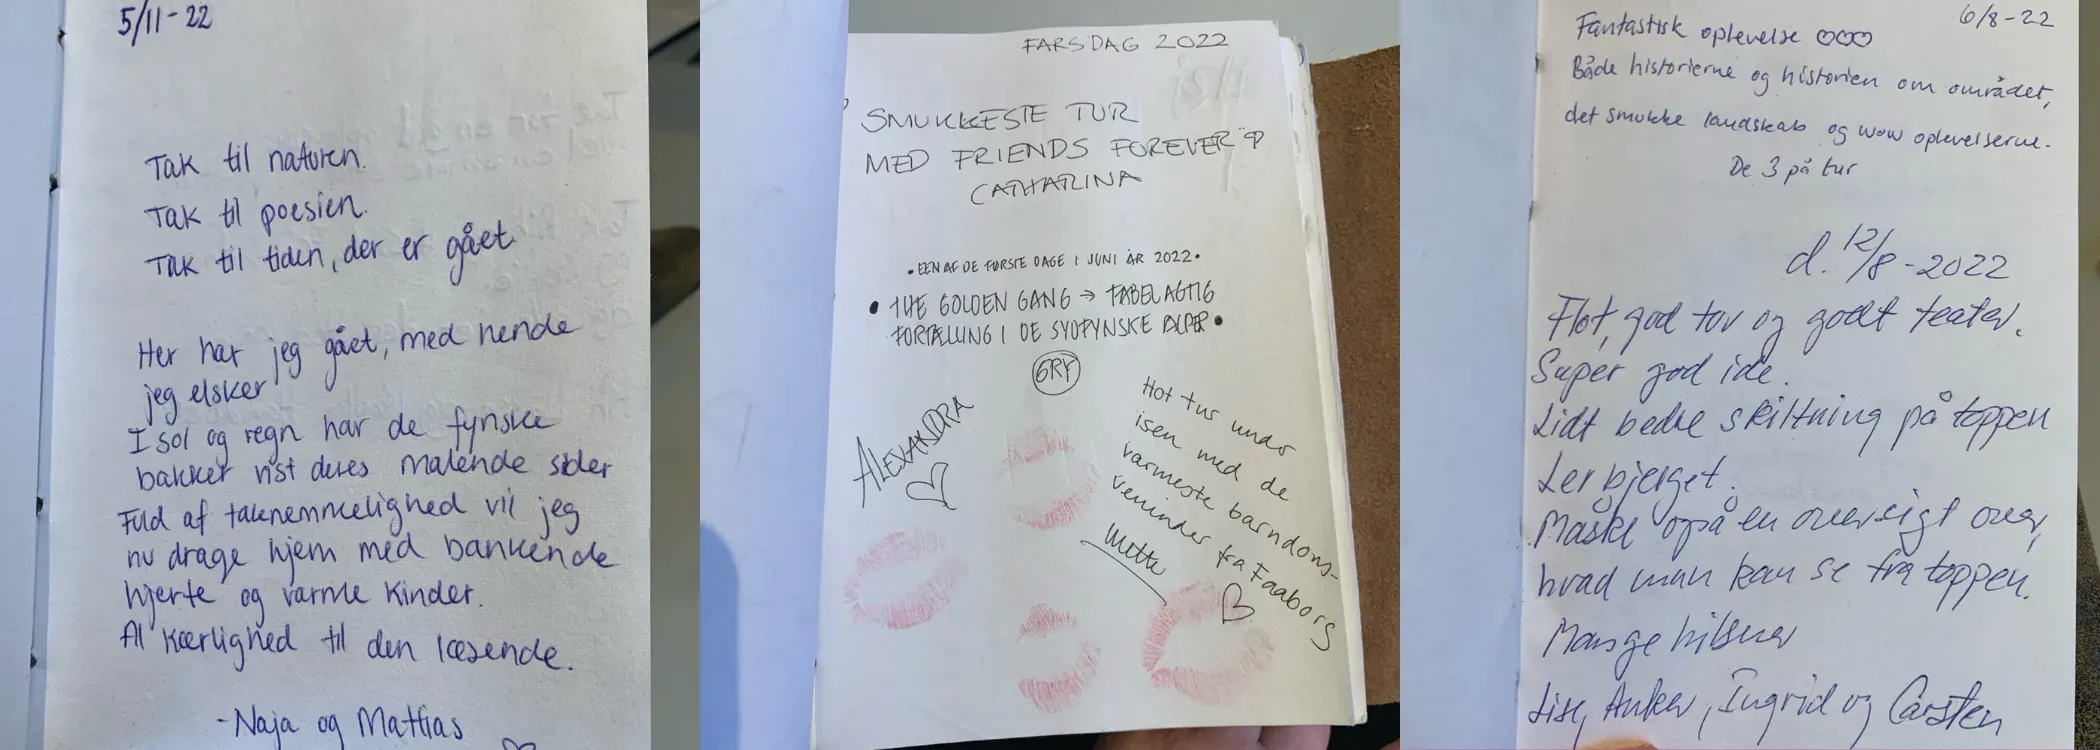 5/11-22
Tak til naturen.
Tak til poesien.
Tak til tiden, der er gået.
Her har jeg gået, med hende
jeg elsker
I sol og regn har de fynske
bakker vist deres malende sider
Fuld af taknemmelighed vil jeg
nu drage hjem med bankende
hjerte og varme kinder.
Al kærlighed til den læsende.
-Naja og Mattias
FARSDAG 2022
SMUKKESTE TUR
MED FRIENDS FOREVER
CATHARINA
• EEN AF DE FØRSTE DAGE I JUNI ÅR 2022.
• THE GOLDEN GANG → FABELAGTIG
FORTÆLLING I DE SYDFYNSKE ALPER •
GRY
ALEXANDRA
Hot tur under
isen med de
varmeste barndoms-
veninder fra Faaborg
Mette
6/8-22
Fantastisk oplevelse ♡♡♡
Både historierne og historien om området,
det smukke landskab og wow oplevelserne.
De 3 på tur
d. 12/8-2022
Flot, god tur og godt teater.
Super god ide.
Lidt bedre skiltning på toppen
Lerbjerget.
Måske også en oversigt over,
hvad man kan se fra toppen.
Mange hilsner
Lise, Anker, Ingrid og Carsten